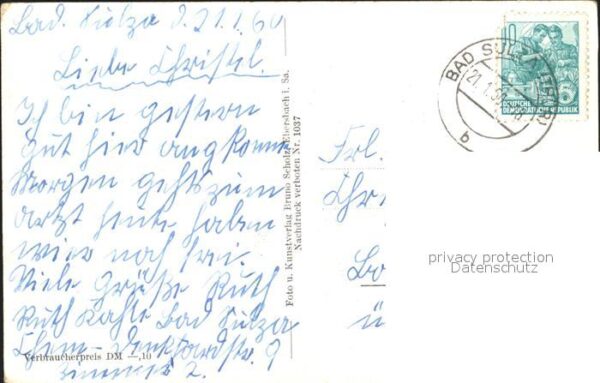 Bad Sulza d. 21.1.60
Liebe Christel.
Ich bin gestern
gut hier angkomm
Morgen gehts zum
arzt heute haben
wier noch frei.
Viele Grüße Ruth
Ruth Kahle Bad Sulza
Zimmer 2.
Verbraucherpreis DM —,10
Foto u. Kunstverlag Bruno Scholz, Ebersbach i. Sa.
Nachdruck verboten Nr. 1037
10
DEUTSCHE
DEMOKRATISCHE REPUBLIK
BAD SULZA
21.1.
b
Frl.
Chr
Ba
ü
privacy protection
Datenschutz